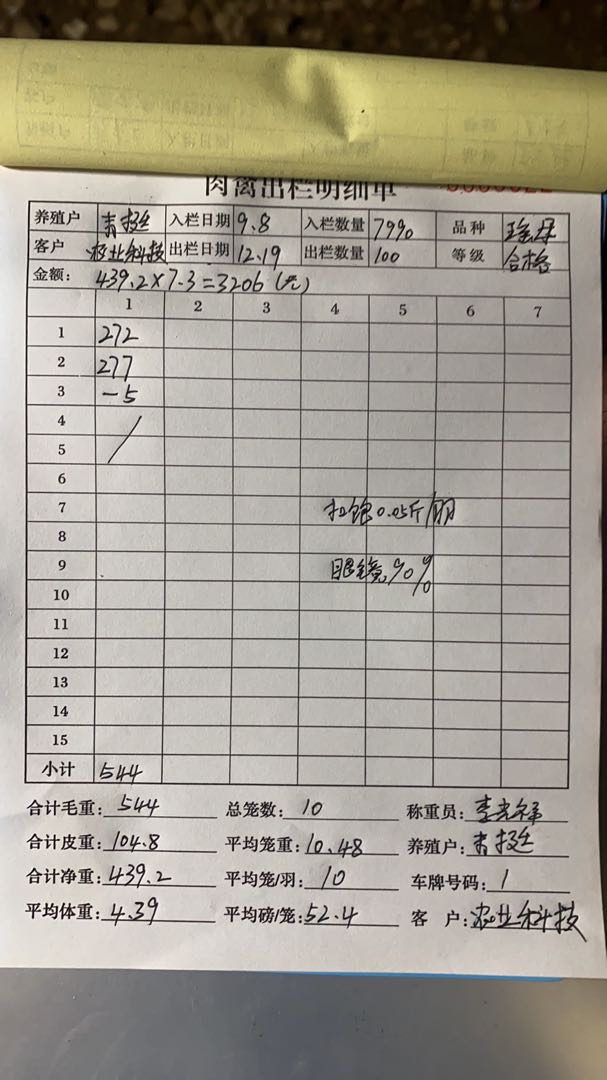 肉禽出栏明细单
养殖户 入栏日期 9.8 入栏数量 7990 品种
客户 农业科技 出栏日期 12.19 出栏数量 100 等级 合格
金额: 439.2×7.3=3206(元)
1 2 3 4 5 6 7
1 272
2 277
3 -5
4
5
6
7 扣饱0.05斤/羽
8
9 眼镜90%
10
11
12
13
14
15
小计 544
合计毛重: 544 总笼数: 10 称重员: 李光禄
合计皮重: 104.8 平均笼重: 10.48 养殖户:
合计净重: 439.2 平均笼/羽: 10 车牌号码: 1
平均体重: 4.39 平均磅/笼: 52.4 客 户: 农业科技